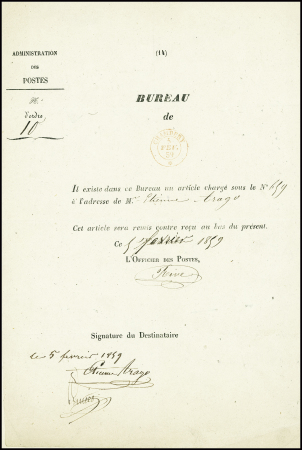 ADMINISTRATION
DES
POSTES
(14)
N°
d'ordre
10
BUREAU
de
Il existe dans ce Bureau un article chargé sous le N° 459
à l'adresse de Mr Etienne Arago
Cet article sera remis contre reçu au bas du présent.
Ce 5 février 1859
L'OFFICIER DES POSTES,
Signature du Destinataire
ce 5 février 1859
Etienne Arago